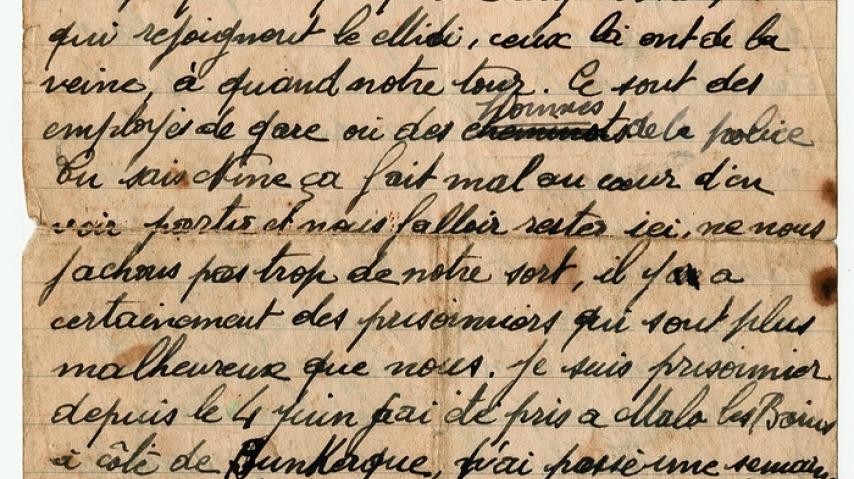 qui rejoignent le Midi, ceux là ont de la
veine, à quand notre tour. Ce sont des
hommes
employés de gare ou des cheminots de la police
Tu sais Nine ça fait mal au cœur d'en
voir partir et nous falloir rester ici, ne nous
fachons pas trop de notre sort, il y a a
certainement des prisonniers qui sont plus
malheureux que nous. Je suis prisonnier
depuis le 4 Juin j'ai été pris a Malo les Bains
à côté de Dunkerque, j'ai passé une semain